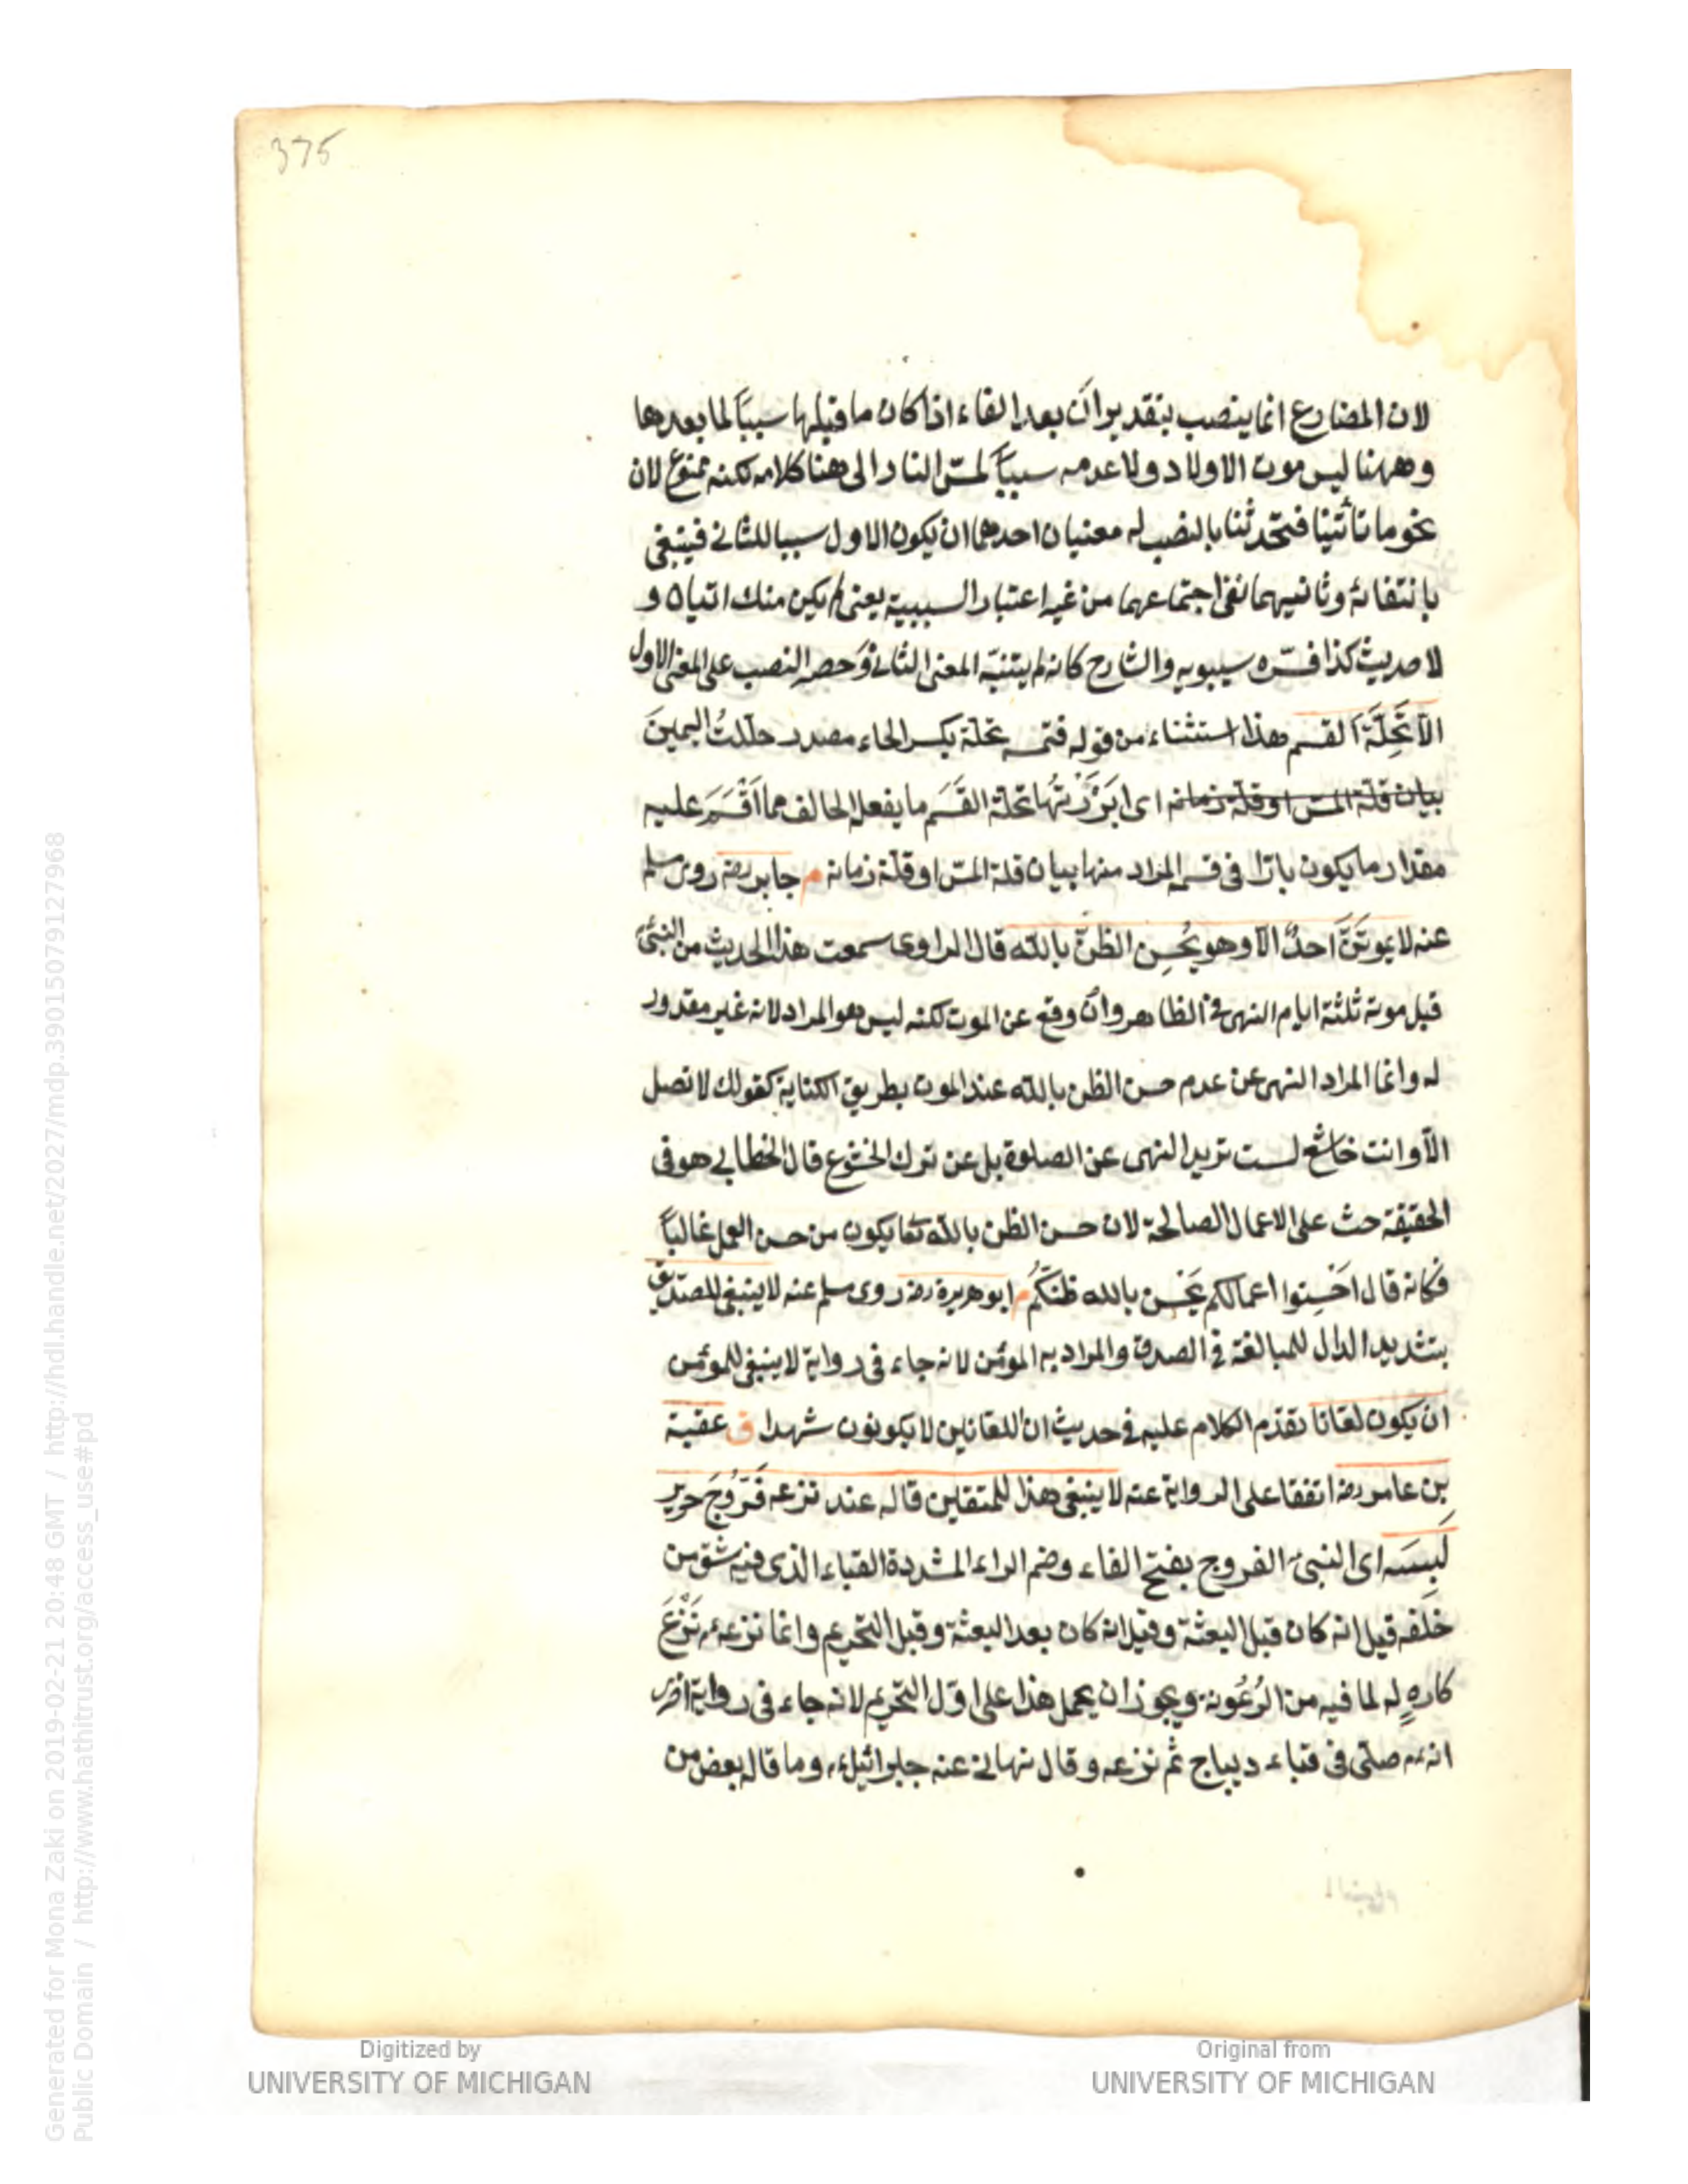 375
لان المضارع انما ينصب بتقدير ان بعد الفاء اذا كان ما قبلها سببا لما بعدها
وههنا ليس موت الاولاد ولا عدمه سببا لمسّ النار الى هنا كلامه لكنه ممنوع لان
نحو ما تأتينا فتحدثنا بالنصب له معنيان احدهما ان يكون الاول سببا للثانى فينتفى
بانتفائه وثانيهما نفى اجتماعهما من غير اعتبار السببية يعنى لم يكن منك اتيان و
لا حديث كذا فسّره سيبويه والشارح كانه لم يتنبّه المعنى الثانى وحصر النصب على المعنى الاول
الّا تَحِلَّةَ القسم هذا استثناء من قوله فتمسه تحلة بكسر الحاء مصدر حلّلتُ اليمينَ
بيان قلة المسّ او قلة زمانه اى ابَرَرْتُها تحلة القَسَم ما يفعل الحالف مما اَقْسَمَ عليه
مقدار ما يكون بارّا فى قسمه المراد منها بيان قلة المسّ او قلة زمانه م جابر رضه روى مسلم
عنه لا يموتَنَّ احدٌ الّا وهو يُحْسِن الظنّ بالله قال الراوى سمعت هذا الحديث من النبىّ
قبل موته ثلثة ايام النهى فى الظاهر وان وقع عن الموت لكنه ليس هو المراد لانه غير مقدور
له وانما المراد النهى عن عدم حسن الظن بالله عند الموت بطريق الكناية كقولك لا تصل
الّا وانت خاشع لست تريد النهى عن الصلوة بل عن ترك الخشوع قال الخطابى هو فى
الحقيقة حث على الاعمال الصالحة لان حسن الظن بالله تعا يكون من حسن العمل غالباً
فكانه قال اَحْسِنوا اعمالكم يَحْسُن بالله ظنُّكُم م ابو هريرة رضه روى مسلم عنه لا ينبغى للصدّيق
بتشديد الدال للمبالغة فى الصدق والمراد به المؤمن لانه جاء فى رواية لا ينبغى للمؤمن
ان يكون لعّانا تقدّم الكلام عليه فى حديث ان اللعانين لا يكونون شهدا ق عقبة
بن عامر رضه اتفقا على الرواية عنه لا ينبغى هذا للمتقين قاله عند نزعه فَرُّوجَ حرير
لَبِسَه اى النبىّ الفروج بفتح الفاء وضم الراء المشددة القباء الذى فيه شق من
خلفه قيل انه كان قبل البعثة وقيل انه كان بعد البعثة وقبل التحريم وانما نزعه نَزْعَ
كارهٍ له لما فيه من الرُّعُونة ويجوز ان يحمل هذا على اوّل التحريم لانه جاء فى رواية اخرى
انه صلّى فى قباء ديباج ثم نزعه وقال نهانى عنه جبرائيل وما قاله بعض من
Digitized by
UNIVERSITY OF MICHIGAN
Original from
UNIVERSITY OF MICHIGAN
Generated for Mona Zaki on 2019-02-21 20:48 GMT / http://hdl.handle.net/2027/mdp.39015079127968
Public Domain / http://www.hathitrust.org/access_use#pd